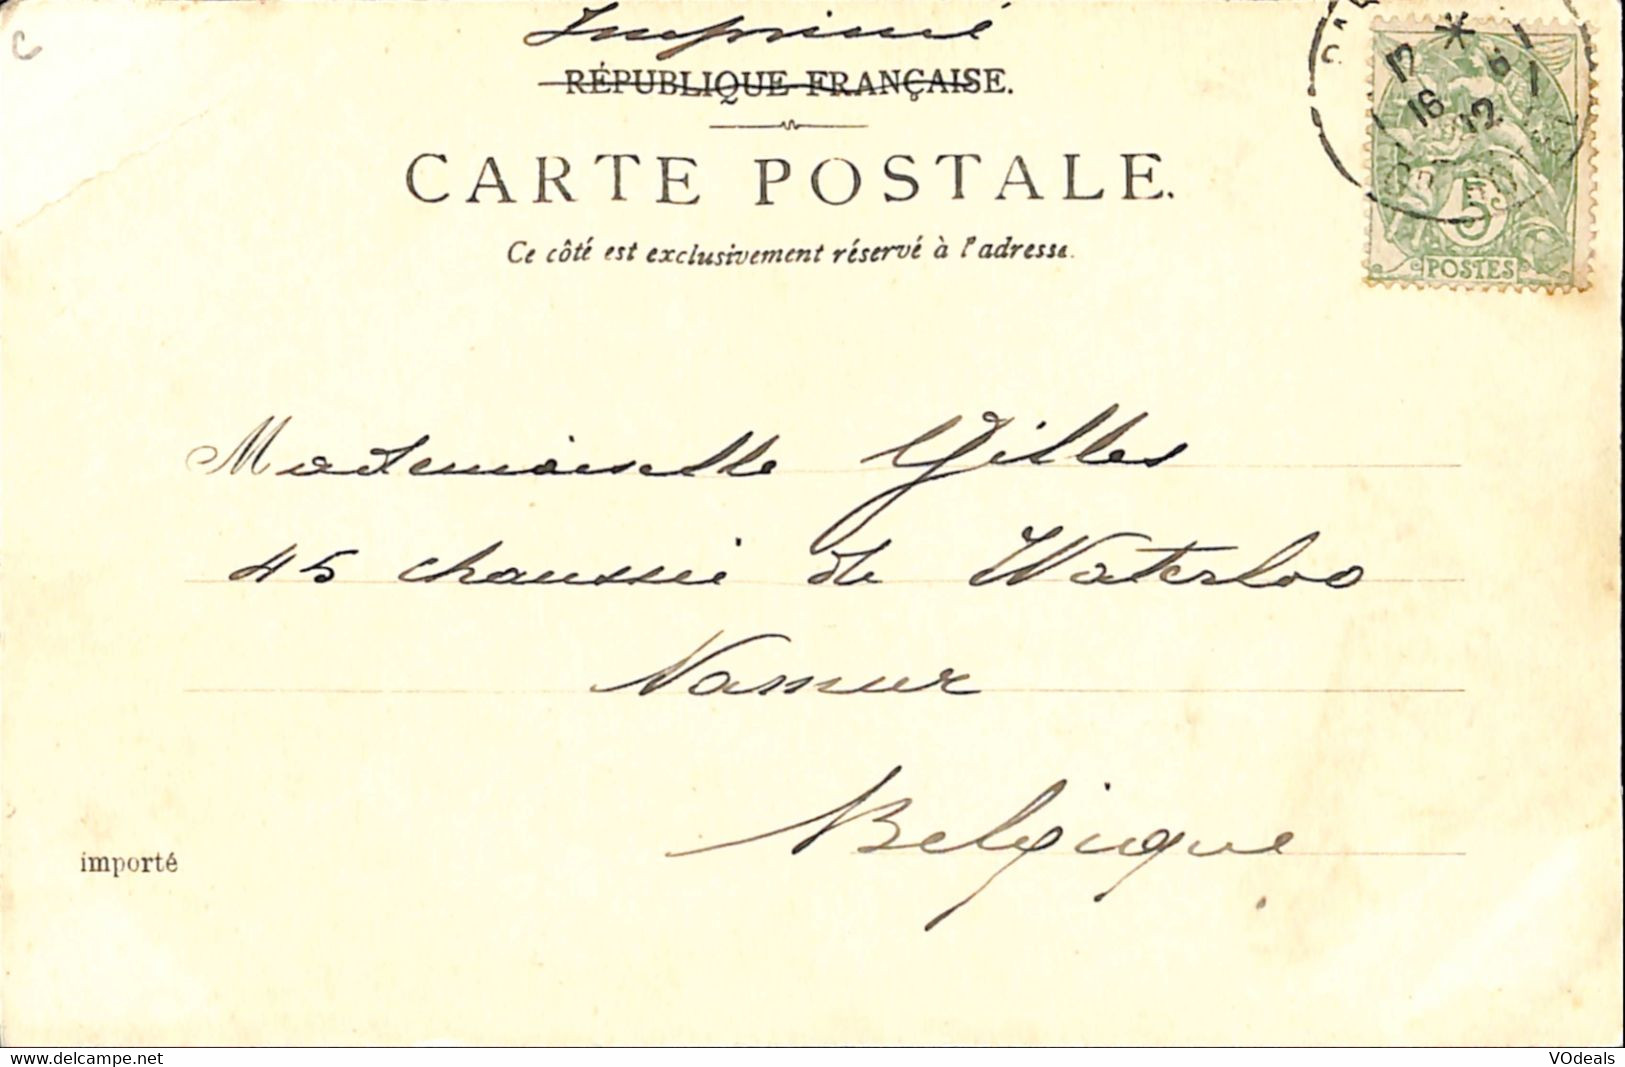 C
Imprimé
RÉPUBLIQUE FRANÇAISE.
CARTE POSTALE.
Ce côté est exclusivement réservé à l'adresse.
16
12
5
POSTES
Mademoiselle Gilles
45 chaussée de Waterloo
Namur
Belgique
importé
delcampe.net
VOdeals